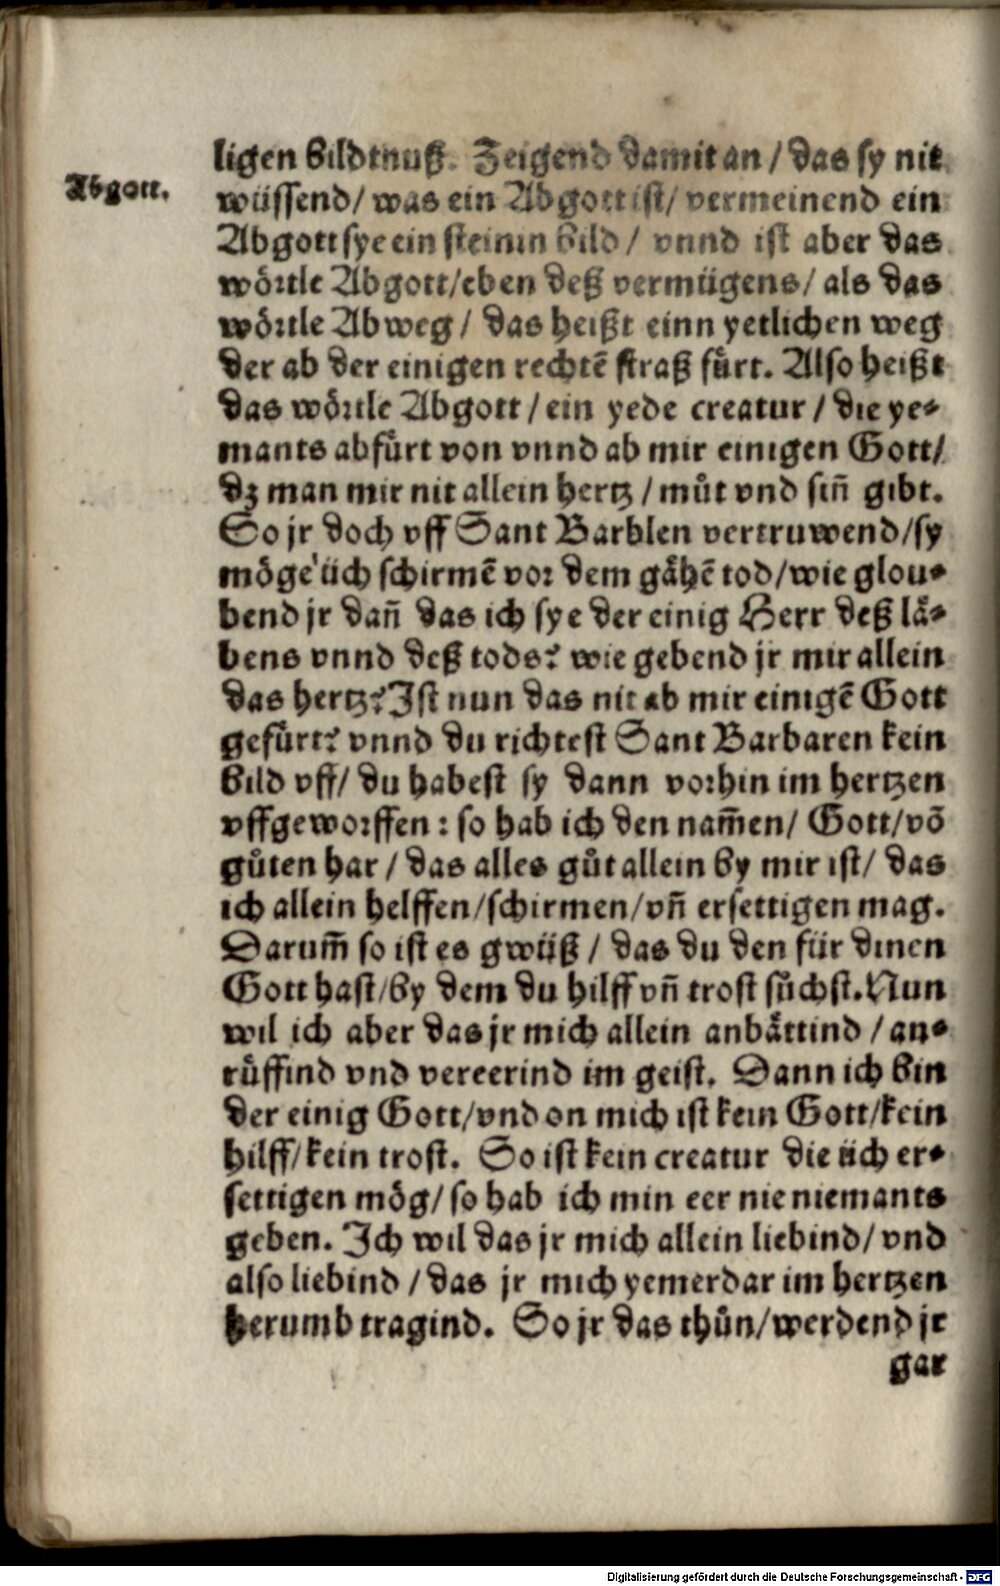 ligen bildtnuß. Zeigend damit an / das sy nit
Abgott.
wüssend / was ein Abgott ist / vermeinend ein
Abgott sye ein steinin bild / vnnd ist aber das
wörtle Abgott / eben deß vermügens / als das
wörtle Abweg / das heißt einn yetlichen weg
der ab der einigen rechtē straß fůrt. Also heißt
das wörtle Abgott / ein yede creatur / die ye⸗
mants abfůrt von vnnd ab mir einigen Gott /
dz man mir nit allein hertz / můt vnd sin̄ gibt.
So jr doch vff Sant Barblen vertruwend / sy
möge üch schirmē vor dem gåhē tod / wie glou⸗
bend jr dan̄ das ich sye der einig Herr deß lå⸗
bens vnnd deß tods? wie gebend jr mir allein
das hertz? Ist nun das nit ab mir einigē Gott
gefůrt? vnnd du richtest Sant Barbaren kein
bild vff / du habest sy dann vorhin im hertzen
vffgeworffen : so hab ich den nam̄en / Gott / vō
gůten har / das alles gůt allein by mir ist / das
ich allein helffen / schirmen / vn̄ ersettigen mag.
Darum̄ so ist es gwüß / das du den für dinen
Gott hast / by dem du hilff vn̄ trost sůchst. Nun
wil ich aber das jr mich allein anbåttind / an⸗
růffind vnd vereerind im geist. Dann ich bin
der einig Gott / vnd on mich ist kein Gott / kein
hilff / kein trost. So ist kein creatur die üch er⸗
settigen mög / so hab ich min eer nie niemants
geben. Ich wil das jr mich allein liebind / vnd
also liebind / das jr mich yemerdar im hertzen
herumb tragind. So jr das thůn / werdend jr
gar
Digitalisierung gefördert durch die Deutsche Forschungsgemeinschaft - DFG